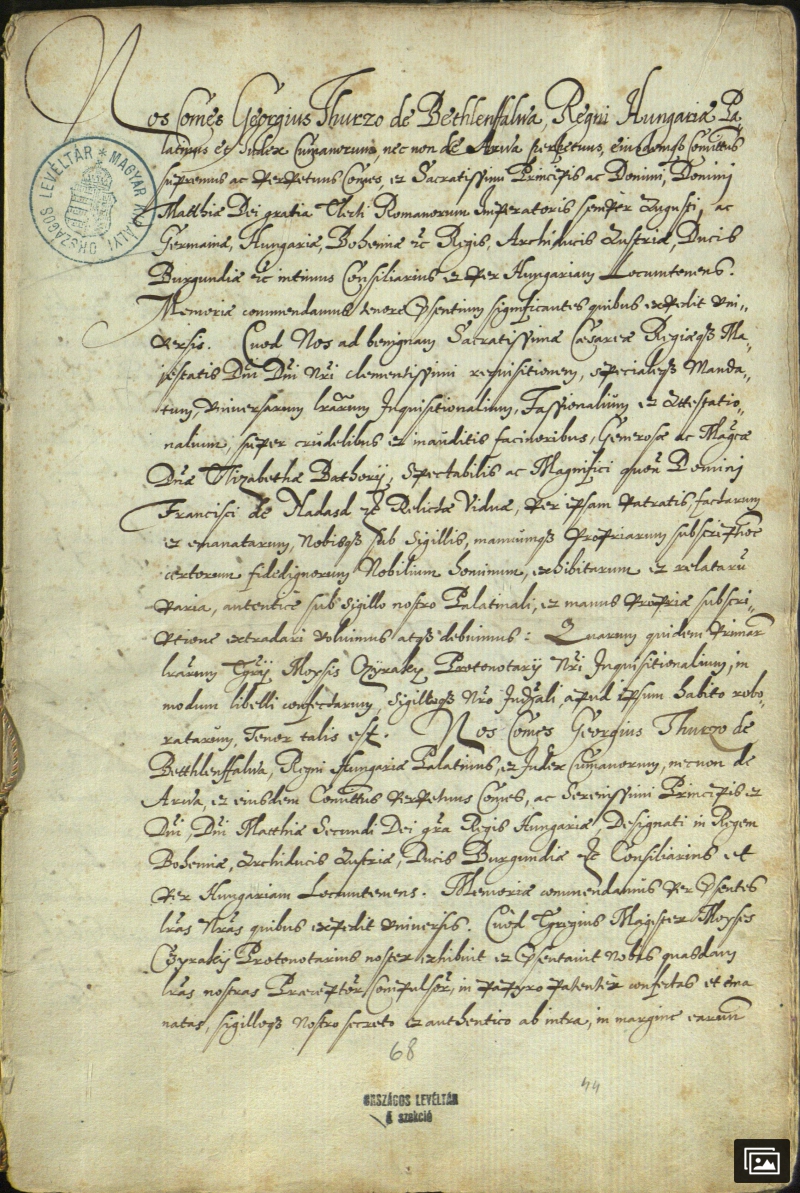 Nos Comes Georgius Thurzo de Bethlenffalwa, Regni Hungariæ Pa-
latinus et Iudex Cumanorum, nec non de Arwa perpetuus, eiusdemq3 Comittus
supremus ac Perpetuus Comes, et Sacratissimi Principis ac Domini, Dominj
Matthiæ Dei gratia Electi Romanorum Imperatoris semper Augusti, ac
Germaniæ, Hungariæ, Bohemiæ etc Regis, Archiducis Austriæ, Ducis
Burgundiæ etc intimus Consiliarius et per Hungariam Locumtenens.
Memoriæ commendamus tenore Psentium significantes quibus expedit vni„
versis. Quod Nos ad benignam Sacratissimæ Cæsareæ Regiæq3 Ma„
iestatis Dni Dni Nri clementissimi requisitionem, specialeq3 Manda„
tum, vniversarum lrarum Inquisitionalium, Fassionalium et Attestatio„
nalium, super crudelibus et inauditis facinoribus, Generosæ ac Magcæ
Dnæ Elizabethæ Bathorij, Spectabilis ac Magnifici quon Dominj
Francisci de Nadasd etc Relictæ Viduæ, per ipsam patratis, factarum
et emanatarum, Nobisq3 sub sigillis, manuumq3 propriarum subscriptioe
certorum fidedignorum Nobilium hominum, exhibitarum et relataru
paria, autenticè sub sigillo nostro Palatinali, et manus propriæ subscri„
ptione extradari voluimus atq3 debuimus: Quarum quidem primar
lrarum Egrij Moysis Czyraky Protonotarij Nri Inquisitionalium, in
modum libelli confectarum, sigilloq3 Nro Iudli, apud ipsum habito robo„
ratarum, Tenor talis est. Nos Comes Georgius Thurzo de
Betthlenffalwa, Regni Hungariæ Palatinus, et Iudex Cumanorum, necnon de
Arwa, et eiusdem Comittus Perpetuus Comes, ac Serenissimi Principis et
Dni, Dni Matthiæ Secundi Dei gra Regis Hungariæ, Designati in Regem
Bohemiæ, Archiducis Austriæ, Ducis Burgundiæ etc Consiliarius et
per Hungariam Locumtenens. Memoriæ commendamus per Psentes
lras Nras quibus expedit vniversis. Quod Egregius Magister Moyses
Czyraky Protonotarius noster exhibuit et Psentavit Nobis quasdam
lras nostras Præceptor, Compulsor, in papyro patenter confectas et ema
natas, sigilloq3 Nostro secreto et authentico ab intra, in margine earum
68
44
MAGYAR KIRÁLYI ORSZÁGOS LEVÉLTÁR
ORSZÁGOS LEVÉLTÁR
szekció